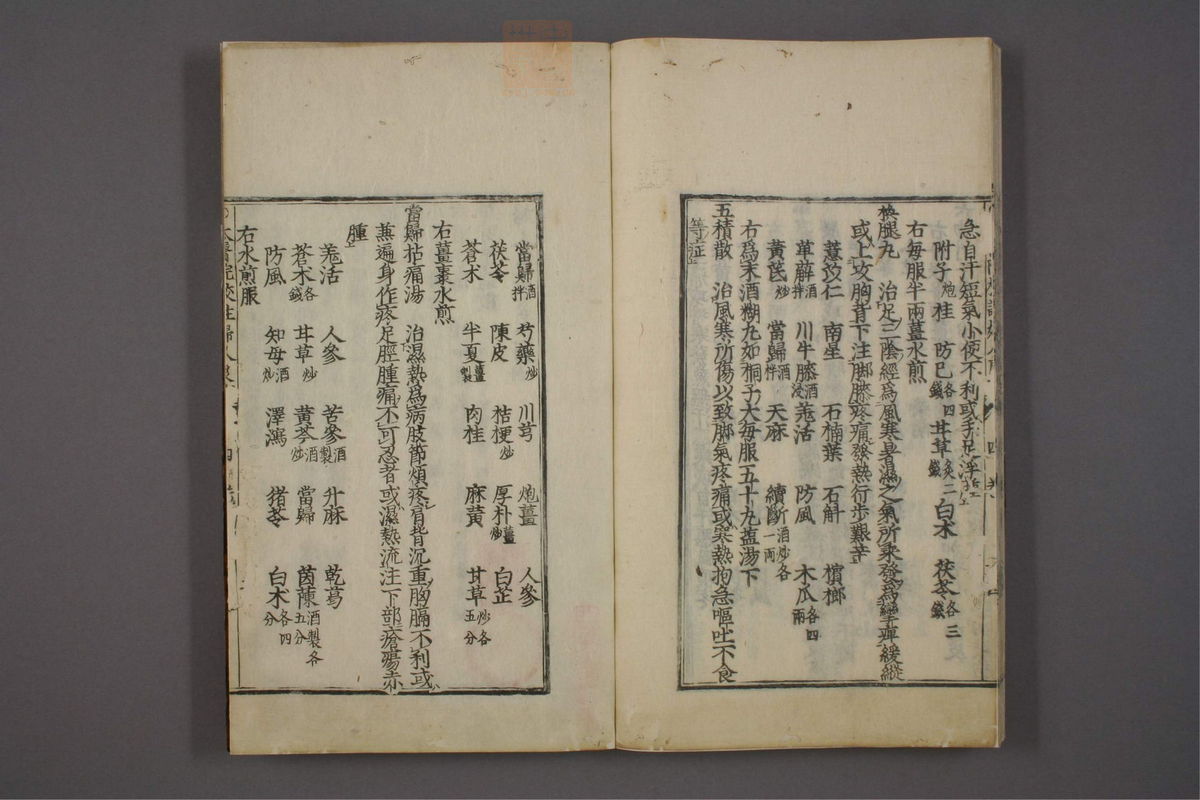 急自汗短氣小便不利或手足浮
附子炮桂防已各四錢甘草炙二錢白朮茯苓各三錢
右每服半兩薑水煎
換腿九　治足三陰經爲風寒暑濕之氣所乘發爲攣痺緩縱
或上攻胸背下注脚膝疼痛發熱行步艱辛
薏苡仁　南星　石楠葉　石斛　檳榔
萆薢酒拌　川牛膝酒浸　羗活　防風　木瓜各四兩
黃芪炒　當歸酒拌　天麻　續斷酒炒各一兩
右爲末酒糊九如桐子大每服五十九盐湯下
五積散　治風寒所傷以致脚氣疼痛或寒熱拘急嘔吐不食
等症
當歸酒拌　芍藥炒　川芎　炮薑　人參
茯苓　陳皮　桔梗炒　厚朴薑炒　白芷
蒼朮　半夏薑製　肉桂　麻黃　甘草炒各五分
右薑棗水煎
當歸拈痛湯　治濕熱爲病肢節煩疼肩背沉重胸膈不利或
兼遍身作疼足脛腫痛不可忍者或濕熱流注下部瘡瘍赤
腫
羗活　人參　苦參酒製　升麻　乾葛
蒼朮各錢　甘草炒　黃芩酒炒　當歸　茵蔯酒製各五分
防風　知母酒炒　澤瀉　猪苓　白朮各四分
右水煎服